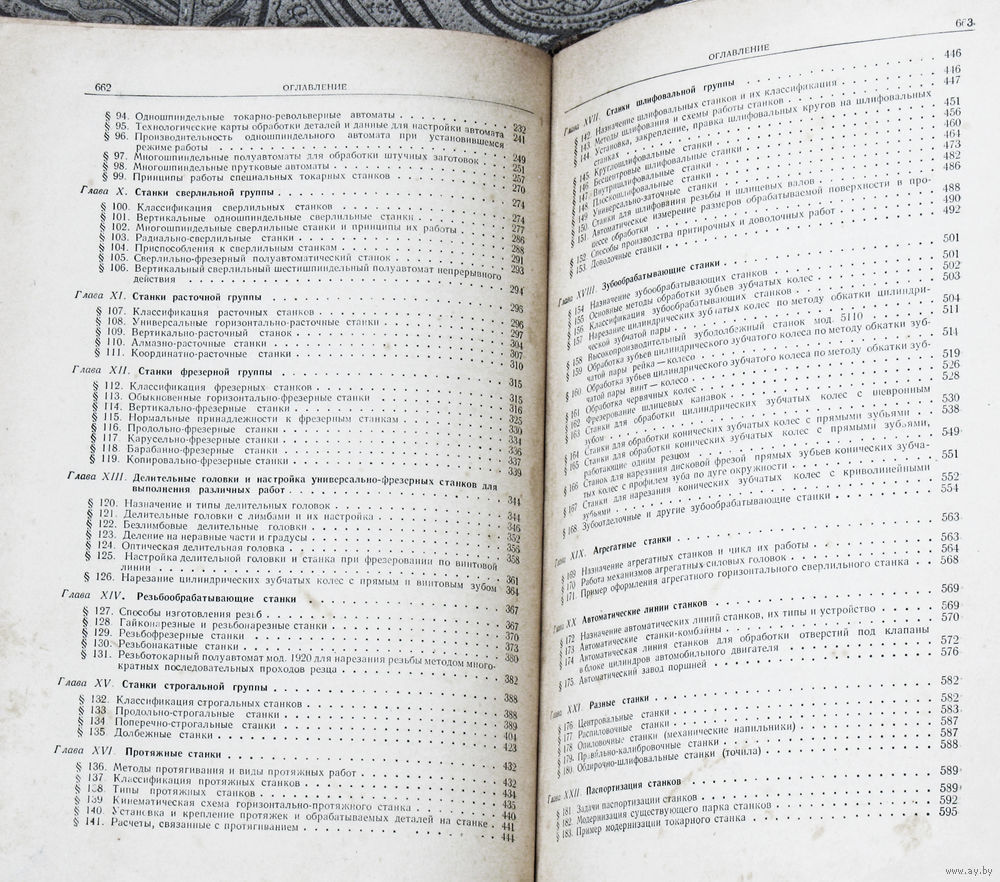 662
ОГЛАВЛЕНИЕ
§ 94. Одношпиндельные токарно-револьверные автоматы 232
§ 95. Технологические карты обработки деталей и данные для настройки автомата 241
§ 96. Производительность одношпиндельного автомата при установившемся
режиме работы 249
§ 97. Многошпиндельные полуавтоматы для обработки штучных заготовок 251
§ 98. Многошпиндельные прутковые автоматы 257
§ 99. Принципы работы специальных токарных станков 270
Глава X. Станки сверлильной группы 274
§ 100. Классификация сверлильных станков 274
§ 101. Вертикальные одношпиндельные сверлильные станки 277
§ 102. Многошпиндельные сверлильные станки и принципы их работы 286
§ 103. Радиально-сверлильные станки 288
§ 104. Приспособления к сверлильным станкам 291
§ 105. Сверлильно-фрезерный полуавтоматический станок 293
§ 106. Вертикальный сверлильный шестишпиндельный полуавтомат непрерывного
действия 294
Глава XI. Станки расточной группы 295
§ 107. Классификация расточных станков 296
§ 108. Универсальные горизонтально-расточные станки 297
§ 109. Вертикально-расточный станок 304
§ 110. Алмазно-расточные станки 307
§ 111. Координатно-расточные станки 310
Глава XII. Станки фрезерной группы 315
§ 112. Классификация фрезерных станков 315
§ 113. Обыкновенные горизонтально-фрезерные станки 316
§ 114. Вертикально-фрезерные станки 325
§ 115. Нормальные принадлежности к фрезерным станкам 330
§ 116. Продольно-фрезерные станки 334
§ 117. Карусельно-фрезерные станки 336
§ 118. Барабанно-фрезерные станки 337
§ 119. Копировально-фрезерные станки 339
Глава XIII. Делительные головки и настройка универсально-фрезерных станков для
выполнения различных работ 344
§ 120. Назначение и типы делительных головок 344
§ 121. Делительные головки с лимбами и их настройка 346
§ 122. Безлимбовые делительные головки 352
§ 123. Деление на неравные части и градусы 356
§ 124. Оптическая делительная головка 358
§ 125. Настройка делительной головки и станка при фрезеровании по винтовой
линии 361
§ 126. Нарезание цилиндрических зубчатых колес с прямым и винтовым зубом 364
Глава XIV. Резьбообрабатывающие станки 367
§ 127. Способы изготовления резьб 367
§ 128. Гайконарезные и резьбонарезные станки 370
§ 129. Резьбофрезерные станки 373
§ 130. Резьбонакатные станки 380
§ 131. Резьботокарный полуавтомат мод. 1920 для нарезания резьбы методом много-
кратных последовательных проходов резца 382
Глава XV. Станки строгальной группы 388
§ 132. Классификация строгальных станков 388
§ 133 Продольно-строгальные станки 389
§ 134 Поперечно-строгальные станки 404
§ 135. Долбежные станки 423
Глава XVI. Протяжные станки 432
§ 136. Методы протягивания и виды протяжных работ 432
§ 137 Классификация протяжных станков 434
§ 138. Типы протяжных станков 435
§ 139 Кинематическая схема горизонтально-протяжного станка 440
§ 140. Установка и крепление протяжек и обрабатываемых деталей на станке 441
§ 141. Расчеты, связанные с протягиванием 444
663
ОГЛАВЛЕНИЕ
Глава XVII. Станки шлифовальной группы 446
§ 142. Назначение шлифовальных станков и их классификация 446
§ 143 Методы шлифования и схемы работы станков 447
§ 144 Установка, закрепление, правка шлифовальных кругов на шлифовальных
станках 451
§ 145. Круглошлифовальные станки 456
§ 146 Бесцентровые шлифовальные станки 460
§ 147 Внутришлифовальные станки 464
§ 148 Плоскошлифовальные станки 473
§ 149 Универсально-заточные станки 482
§ 150 Станки для шлифования резьбы и шлицевых валов 486
§ 151 Автоматическое измерение размеров обрабатываемой поверхности в про-
цессе обработки 488
§ 152. Способы производства притирочных и доводочных работ 490
§ 153. Доводочные станки 492
Глава XVIII. Зубообрабатывающие станки 501
§ 154 Назначение зубообрабатывающих станков 501
§ 155 Основные методы обработки зубьев зубчатых колес 502
§ 156. Классификация зубообрабатывающих станков 503
§ 157 Нарезание цилиндрических зубчатых колес по методу обкатки цилиндри-
ческой зубчатой пары 504
§ 158 Высокопроизводительный зубодолбежный станок мод. 5110 511
§ 159. Обработка зубьев цилиндрического зубчатого колеса по методу обкатки зуб-
чатой пары рейка — колесо 514
§ 160 Обработка зубьев цилиндрического зубчатого колеса по методу обкатки зуб-
чатой пары винт — колесо 519
§ 161 Обработка червячных колес 526
§ 162 Фрезерование шлицевых канавок 528
§ 163 Станки для обработки цилиндрических зубчатых колес с шевронным
зубом 530
§ 164 Станки для обработки конических зубчатых колес с прямыми зубьями 538
§ 165 Станки для обработки конических зубчатых колес с прямыми зубьями,
работающие одним резцом 549
§ 166 Станок для нарезания дисковой фрезой прямых зубьев конических зубча-
тых колес с профилем зуба по дуге окружности 551
§ 167 Станки для нарезания конических зубчатых колес с криволинейными
зубьями 552
§ 168. Зубоотделочные и другие зубообрабатывающие станки 554
Глава XIX. Агрегатные станки 563
§ 169 Назначение агрегатных станков и цикл их работы 563
§ 170 Работа механизмов агрегатных силовых головок 564
§ 171. Пример оформления агрегатного горизонтального сверлильного станка 568
Глава XX Автоматические линии станков 569
§ 172 Назначение автоматических линий станков, их типы и устройство 569
§ 173 Автоматические станки-комбайны 570
§ 174 Автоматическая линия станков для обработки отверстий под клапаны
в блоке цилиндров автомобильного двигателя 572
§ 175. Автоматический завод поршней 576
Глава XXI. Разные станки 582
§ 176 Центровальные станки 582
§ 177 Распиловочные станки 583
§ 178 Опиловочные станки (механические напильники) 587
§ 179. Правильно-калибровочные станки 587
§ 180. Обдирочно-шлифовальные станки (точила) 588
Глава XXII. Паспортизация станков 589
§ 181 Задачи паспортизации станков 589
§ 182. Модернизация существующего парка станков 592
§ 183. Пример модернизации токарного станка 595
www.ay.by